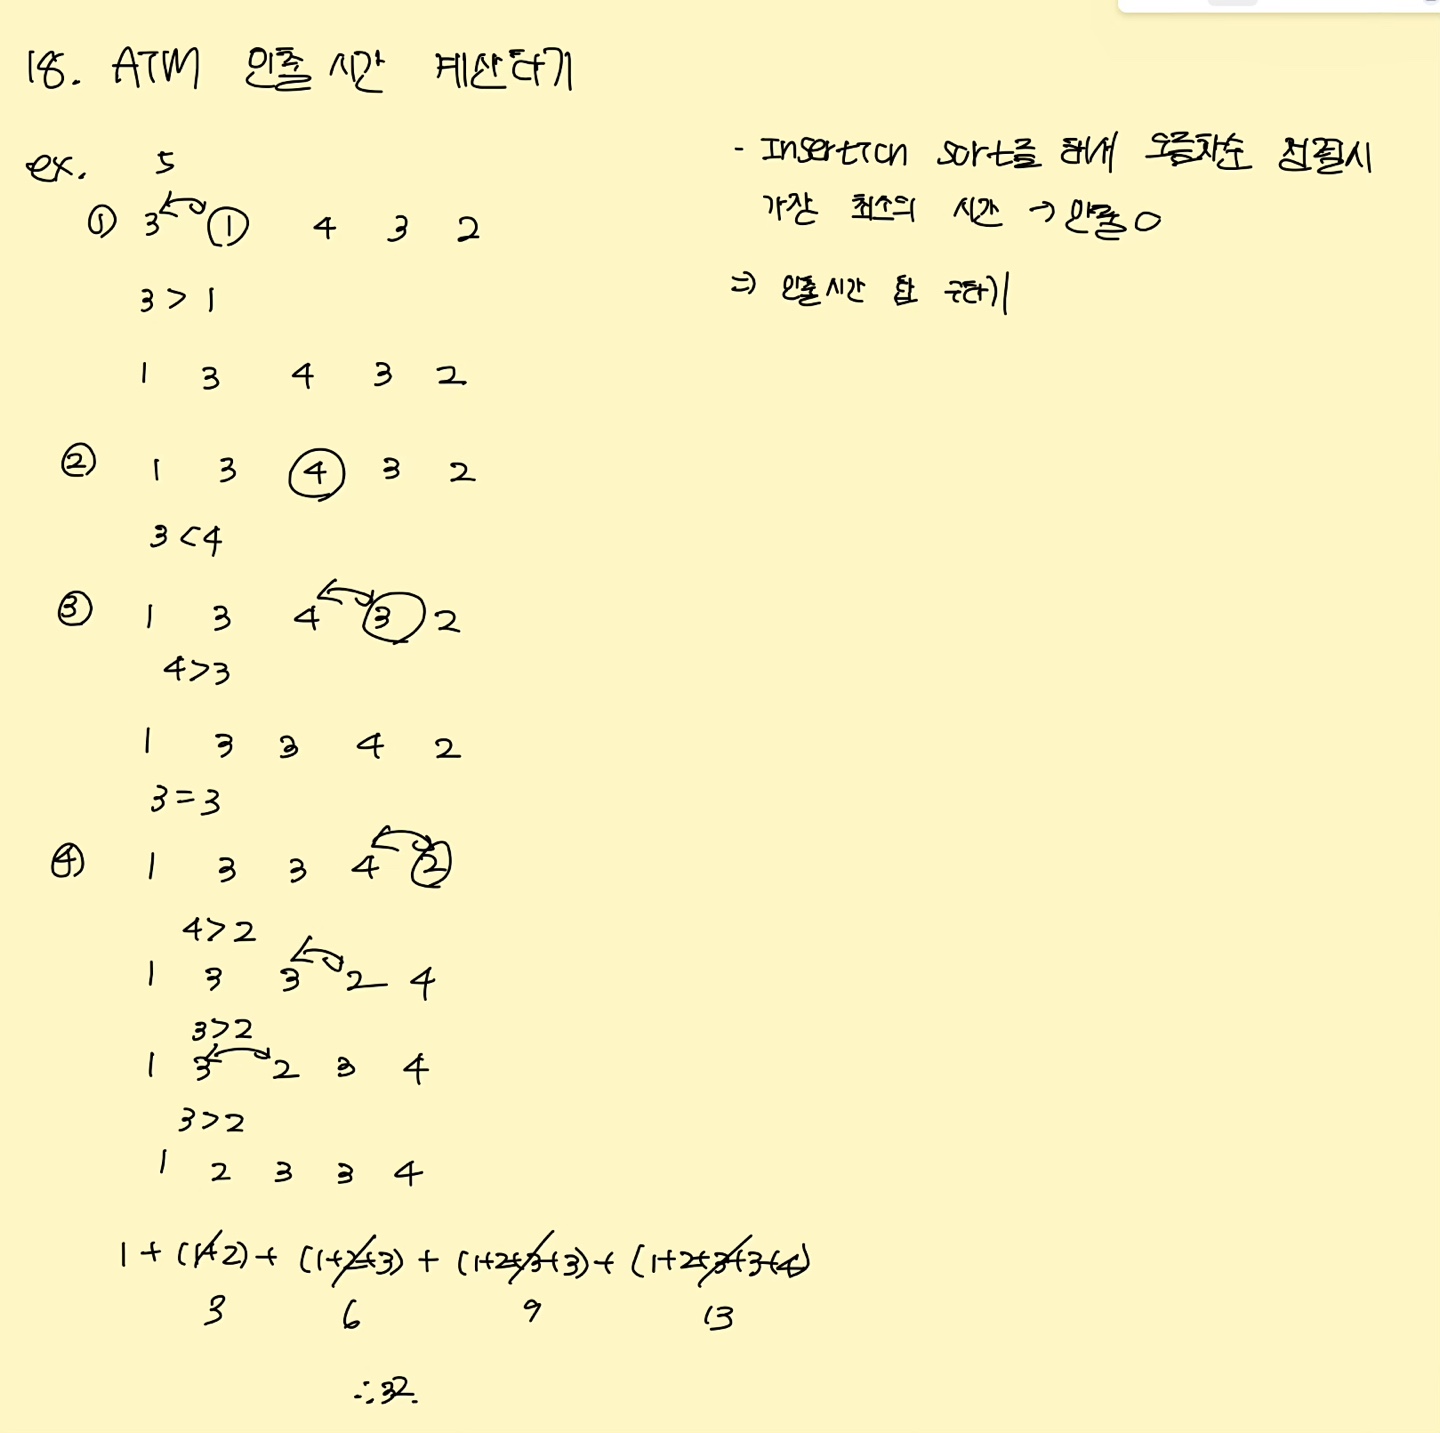 18. ATM 인출 시간 계산하기
ex. 5
① 3 1 4 3 2
3 > 1
1 3 4 3 2
② 1 3 4 3 2
3 < 4
③ 1 3 4 3 2
4 > 3
1 3 3 4 2
3 = 3
④ 1 3 3 4 2
4 > 2
1 3 3 2 4
3 > 2
1 3 2 3 4
3 > 2
1 2 3 3 4
1 + (1+2) + (1+2+3) + (1+2+3+3) + (1+2+3+3+4)
3 6 9 13
∴ 32.
- Insertion sort를 통해 오름차순 정렬시
가장 최소의 시간 → 인출 O
⇒ 인출시간 합 구하기